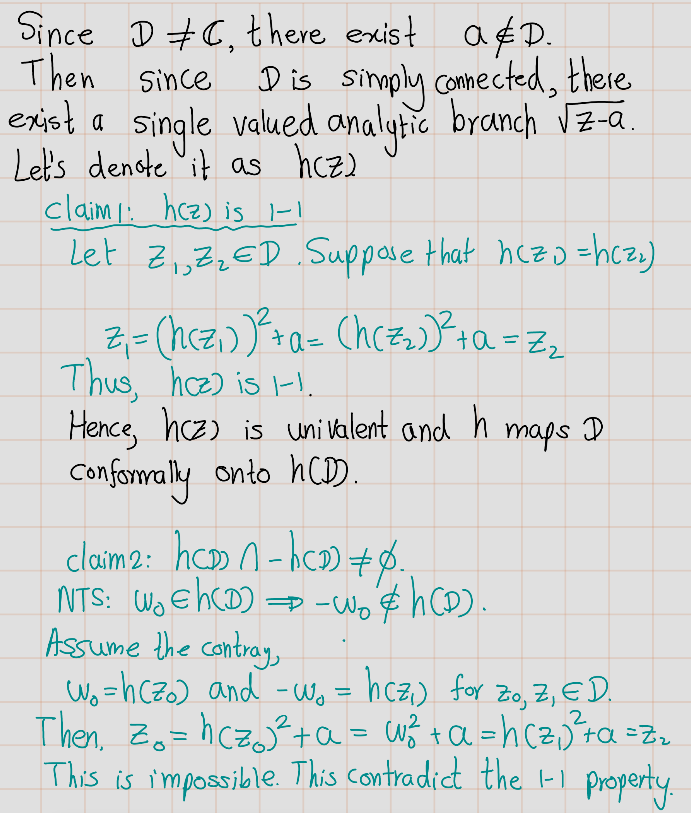 Since D ≠ ℂ, there exist a ∉ D.
Then since D is simply connected, there
exist a single valued analytic branch √(z-a).
Let's denote it as h(z)
claim1: h(z) is 1-1
Let z₁,z₂ ∈ D. Suppose that h(z₁) = h(z₂)
z₁ = (h(z₁))² + a = (h(z₂))² + a = z₂
Thus, h(z) is 1-1.
Hence, h(z) is univalent and h maps D
conformally onto h(D).
claim2: h(D) ∩ -h(D) ≠ ∅.
NTS: ω₀ ∈ h(D) ⟹ -ω₀ ∉ h(D).
Assume the contray,
ω₀ = h(z₀) and -ω₀ = h(z₁) for z₀, z₁ ∈ D.
Then, z₀ = h(z₀)² + a = ω₀² + a = h(z₁)² + a = z₂
This is impossible. This contradict the 1-1 property.